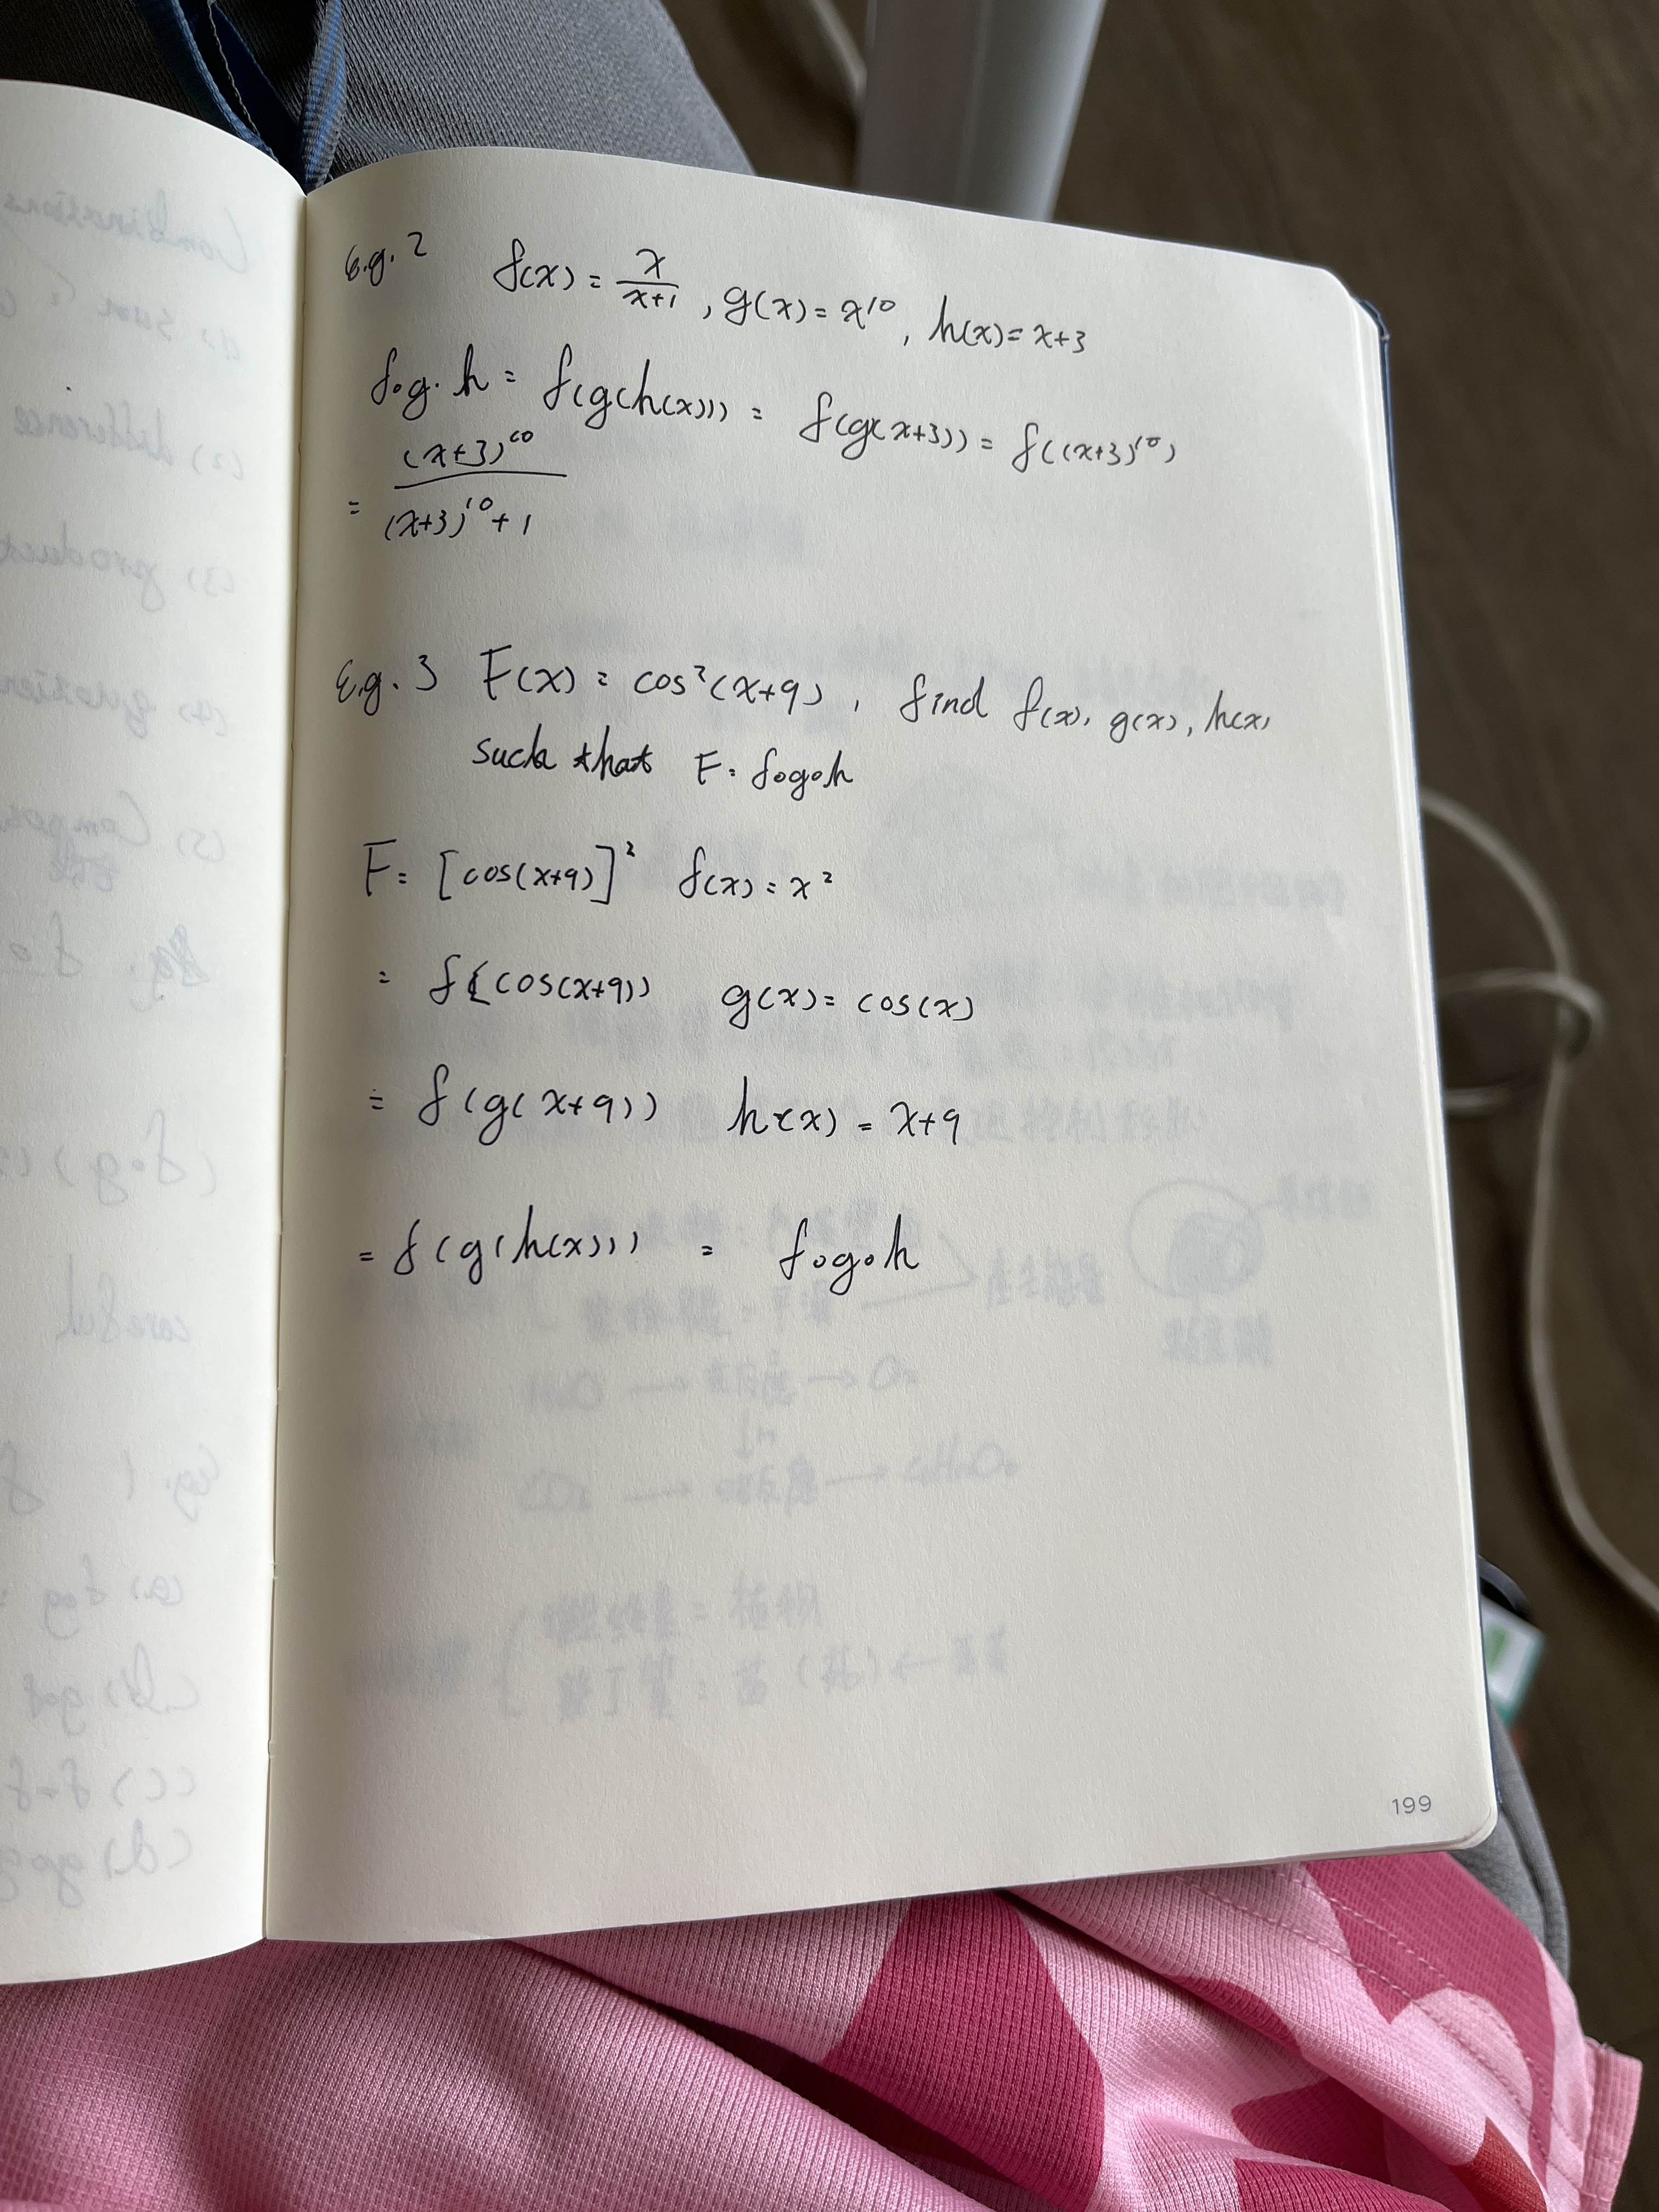 E.g. 2 f(x) = x/(x+1), g(x) = x^10, h(x) = x+3
f∘g∘h = f(g(h(x))) = f(g(x+3)) = f((x+3)^10)
= (x+3)^10/((x+3)^10+1)
E.g. 3 F(x) = cos²(x+9), find f(x), g(x), h(x)
such that F = f∘g∘h
F = [cos(x+9)]² f(x) = x²
= f(cos(x+9)) g(x) = cos(x)
= f(g(x+9)) h(x) = x+9
= f(g(h(x))) = f∘g∘h
199